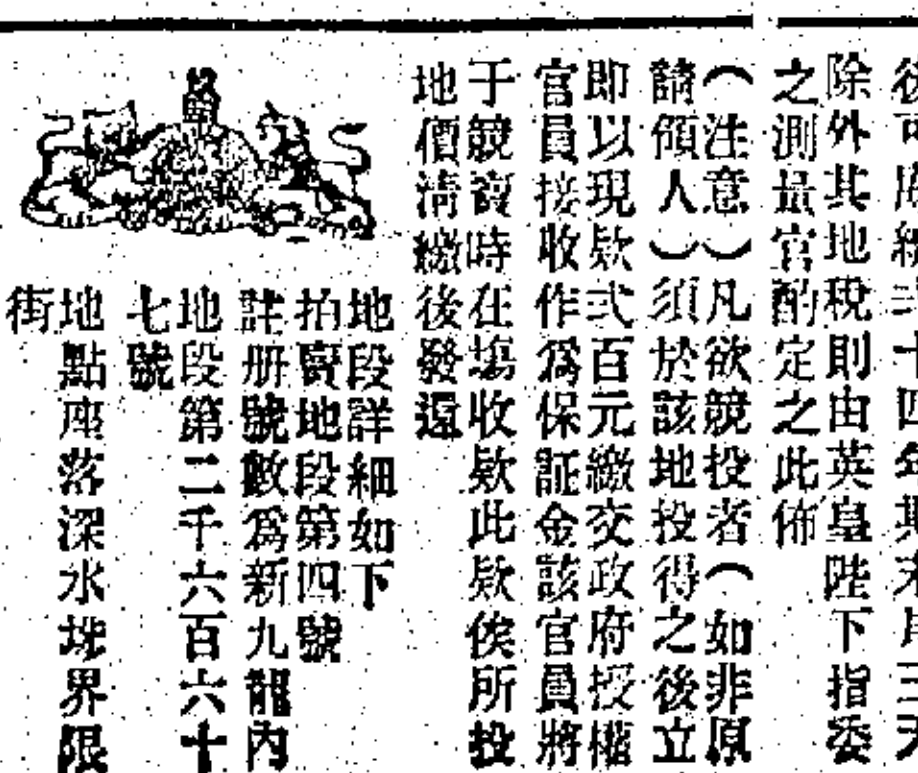 後可展續二十四年期末尾三天
除外其地稅則由英皇陛下指委
之測量官酌定之此佈
(注意)凡欲競投者(如非原
請領人)須於該地投得之後立
即以現欵弍百元繳交政府授權
官員接收作爲保証金該官員將
于競賣時在塲收欵此欵俟所投
地價淸繳後發還
地段詳細如下
拍賣地段第四號
註册號數爲新九龍內
地段第二千六百六十
七號
地點座落深水埗界限
街